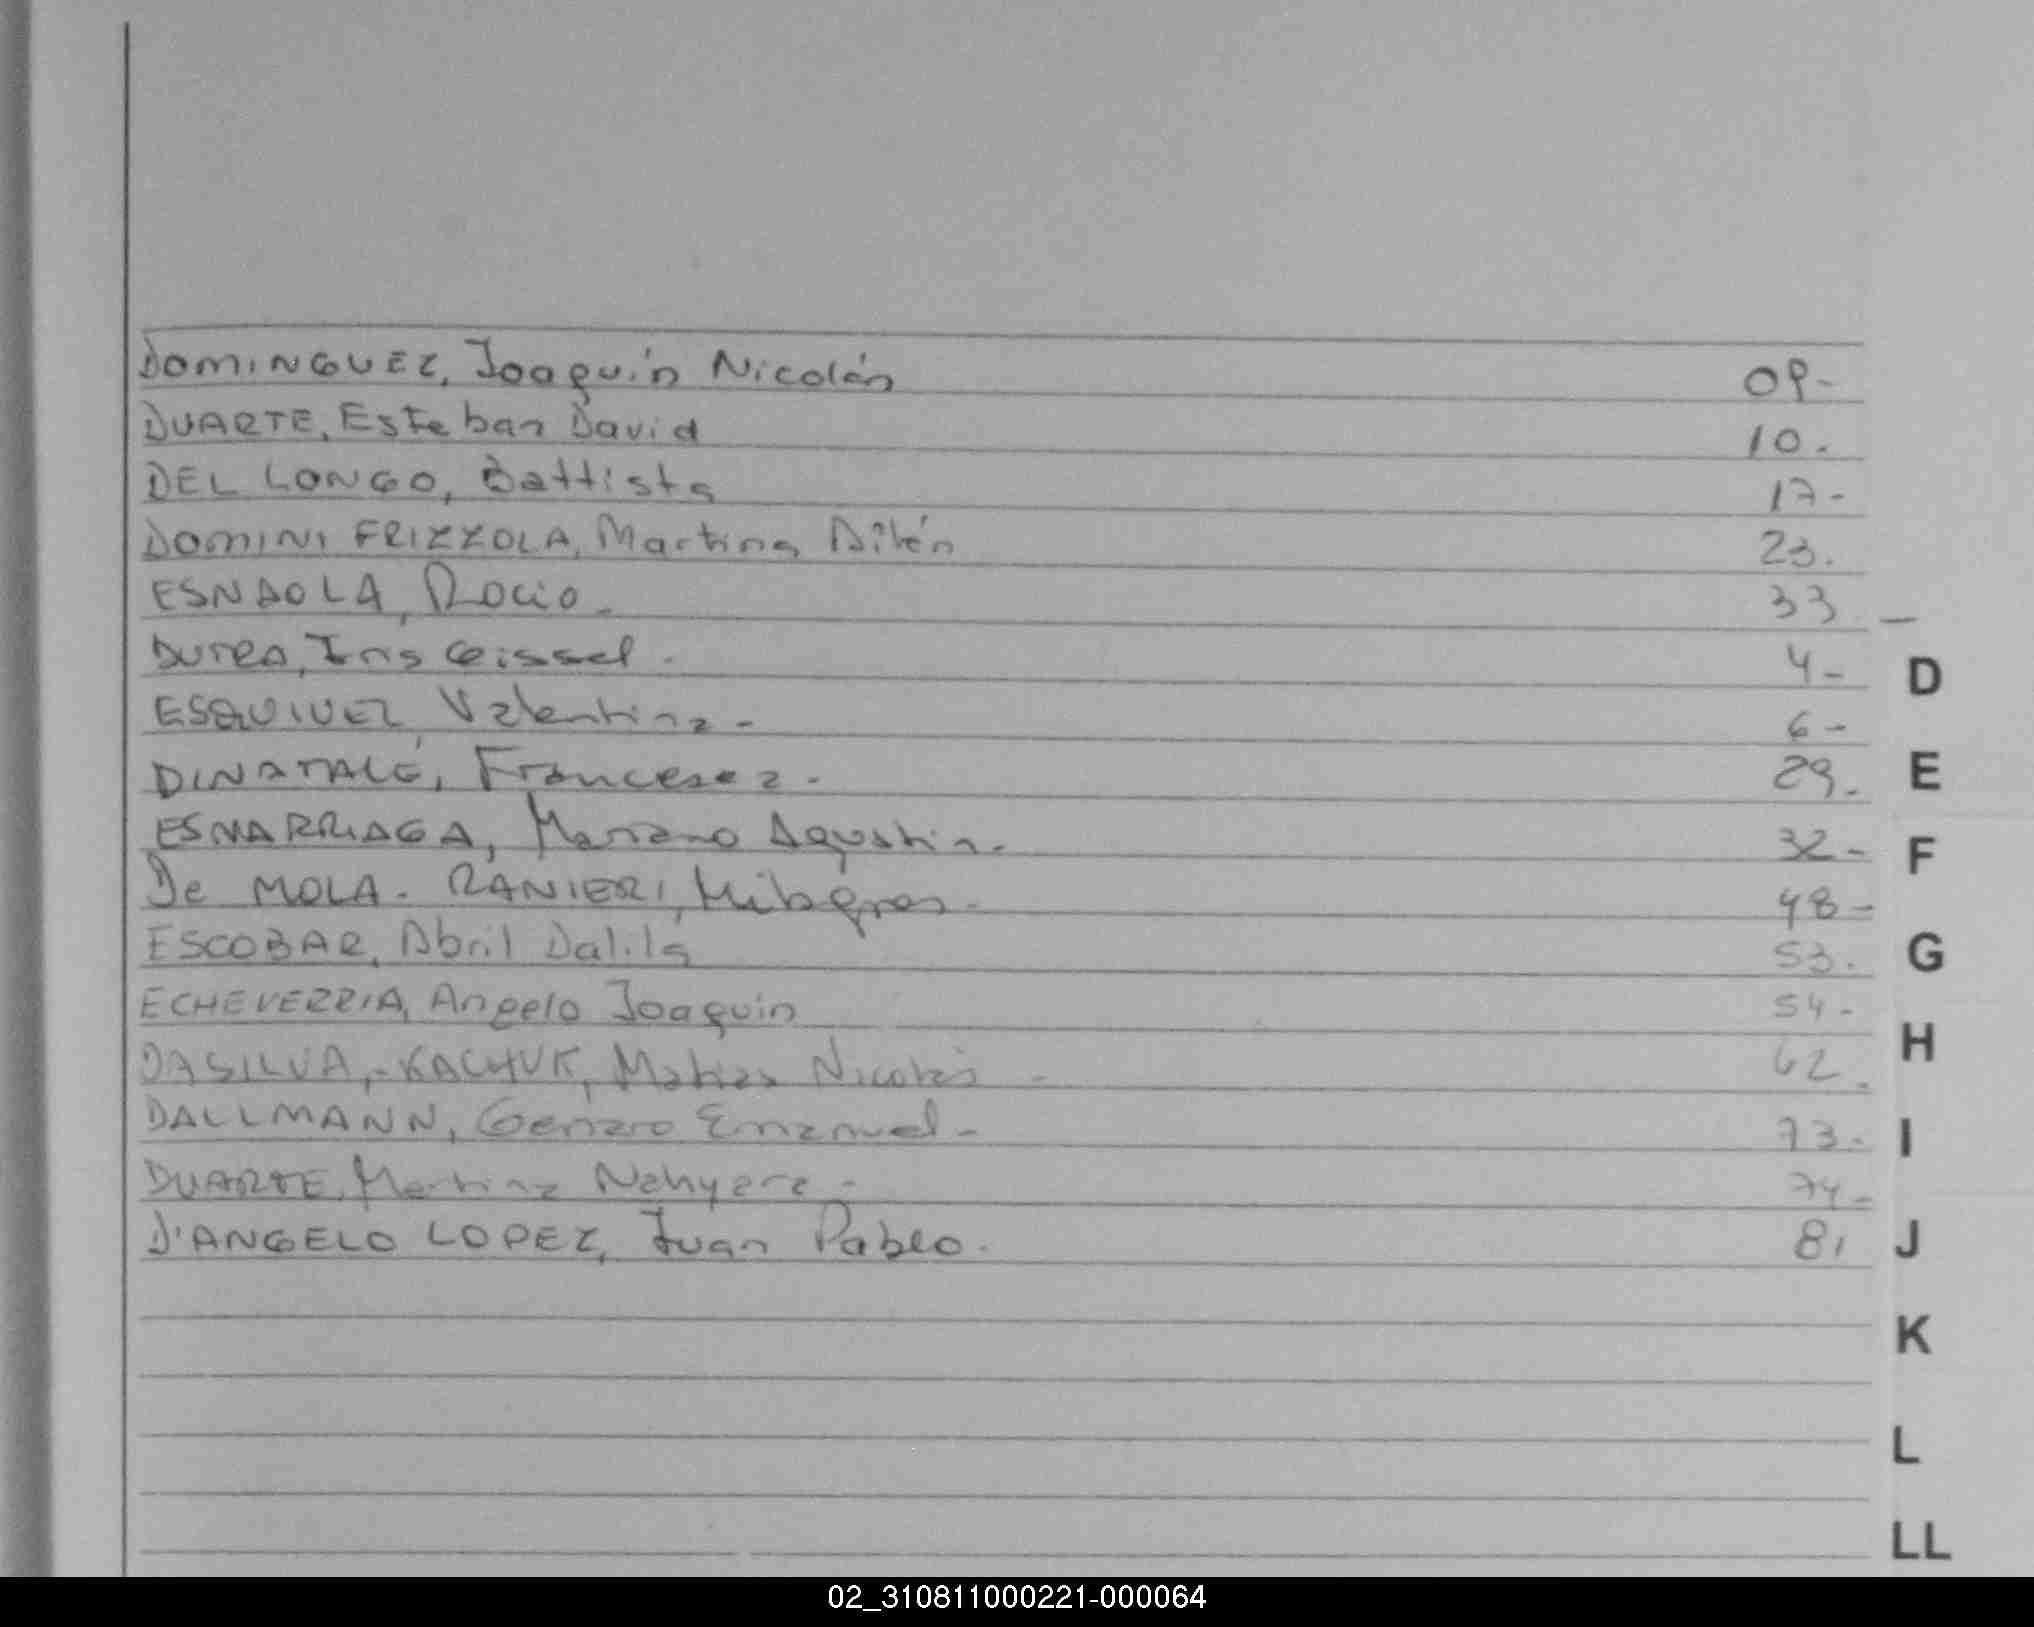 DOMINGUEZ, Joaquín Nicolás 09-
DUARTE, Esteban David 10.
DEL LONGO, Battista 17-
DOMINI FRIZZOLA, Martina Ailén 23.
ESNAOLA, Rocio - 33 -
DUTRA, Iris Geissel - 4-
D
ESQUIVEL, Valentina - 6-
DINATALE, Francesca - 29-
E
ESNARRIAGA, Mariano Agustin - 32-
F
De MOLA - RANIERI, Milagros - 48-
ESCOBAR, Abril Dalila 53.
G
ECHEVERRIA, Angelo Joaquin 54-
H
DASILVA,-KACHUK, Matias Nicolás - 62-
DALLMANN, Genaro Emanuel - 73-
I
DUARTE, Martina Nahyara - 74-
D'ANGELO LOPEZ, Juan Pablo. 81
J
K
L
LL
02_310811000221-000064